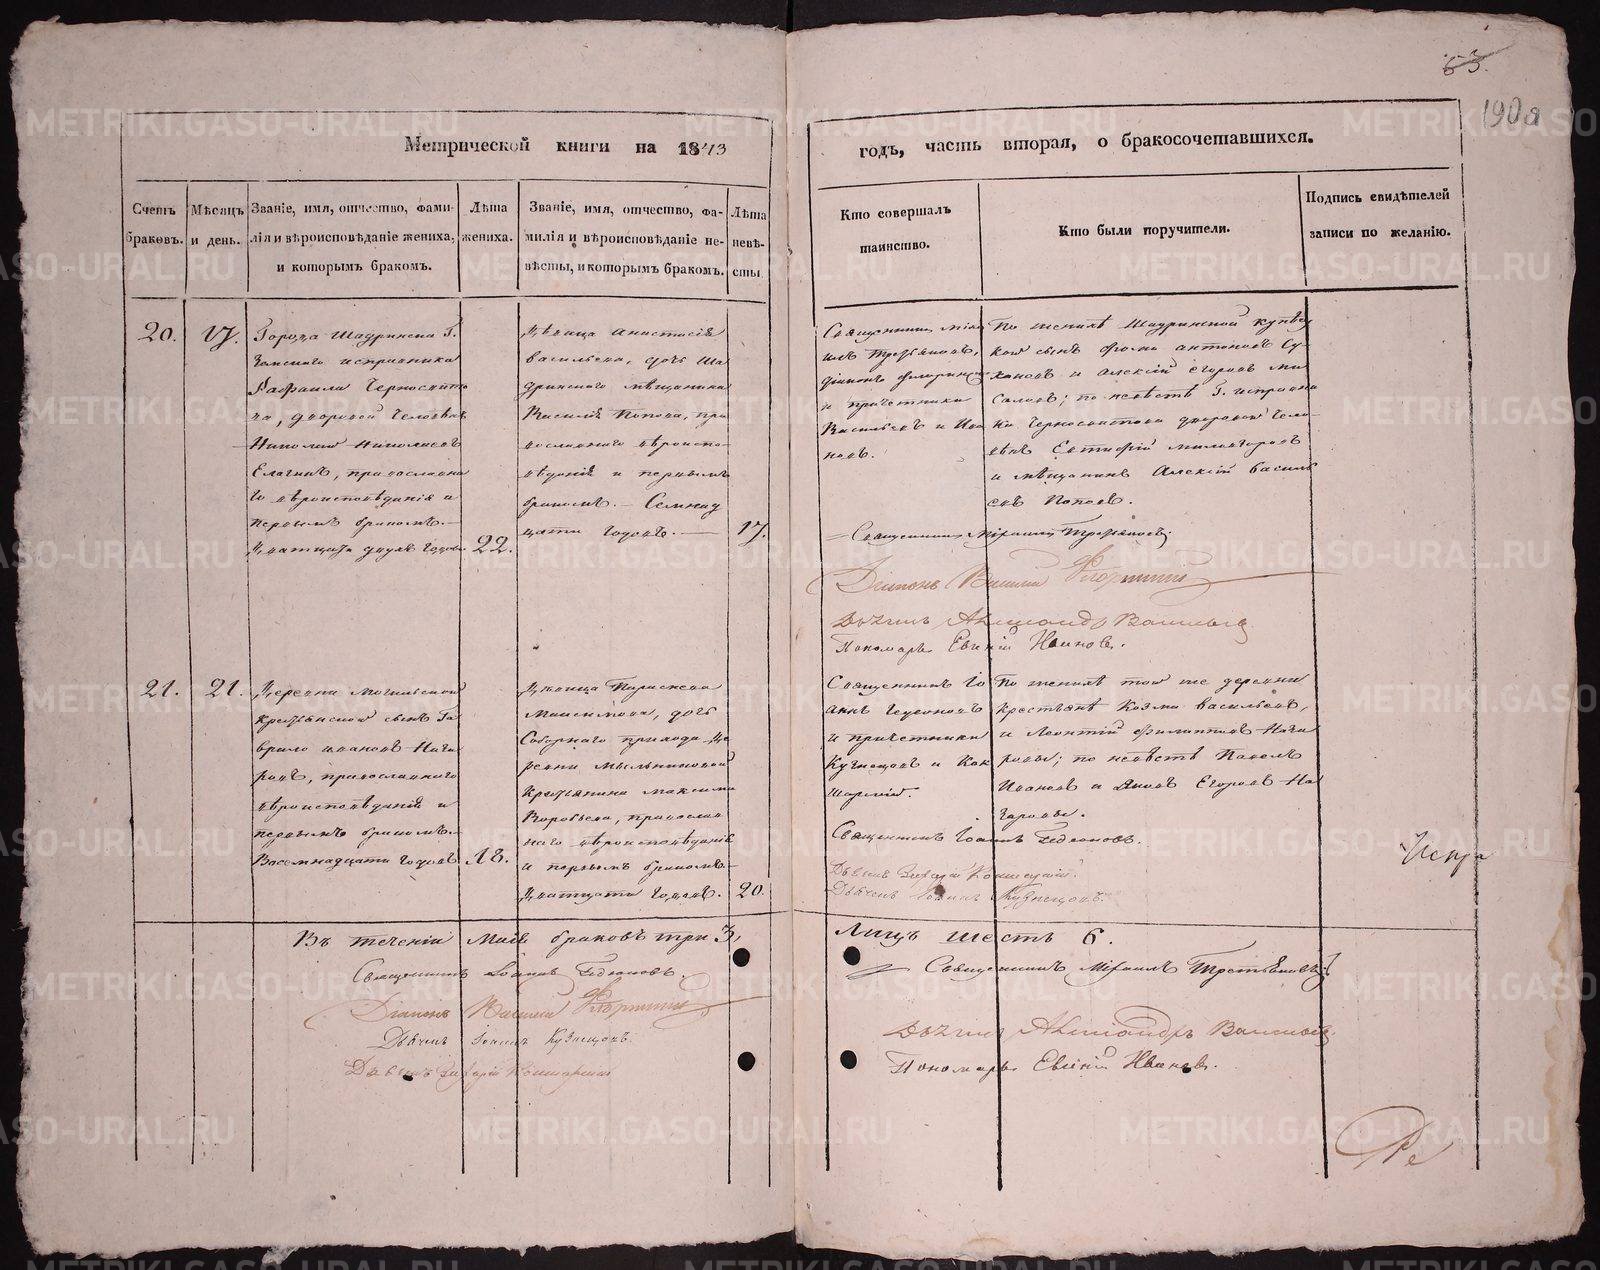 63.
190об
Метрической книги на 1843
годъ, часть вторая, о бракосочетавшихся.
Счетъ браковъ.
Мѣсяцъ и день.
Званіе, имя, отчество, фами-
лія и вѣроисповѣданіе жениха,
и которымъ бракомъ.
Лѣта
жениха.
Званіе, имя, отчество, фа-
милія и вѣроисповѣданіе не-
вѣсты, и которымъ бракомъ.
Лѣта
невѣ-
сты.
Кто совершалъ
таинство.
Кто были поручители.
Подпись свидѣтелей
записи по желанію.
20.
17.
Города Шадринска Г.
Земскаго исправника
Рафаила Черносвито
ва, дворовой человѣкъ
Николай Николаевъ
Елагинъ, православна
го вѣроисповѣданія и
первымъ бракомъ.—
Дватцати двухъ годовъ
22.
Дѣвица Анастасія
Васильева, дочь Ша
дринскаго мѣщанина
Василія Попова, пра
вославнаго вѣроиспо-
вѣданія и первымъ
бракомъ.— Семнад
цати годовъ.—
17.
Священникъ Миха
илъ Третьяковъ,
діаконъ Флоринскій
и причетники
Васильевъ и Ива
новъ.
По женихѣ Шадринской купѣче
кой сынъ Фома Антоновъ Су-
хановъ и Алексій Егоровъ
по невѣстѣ Г. исправни
ка Черносвитова дворовой чело-
вѣкъ Евтифій
и мѣщанинъ Алексій Василь
евъ Попов.
Священникъ Михаилъ Третьяковъ.
Діаконъ Василій Флоринскій
Дьячекъ Александръ Васильевъ
Пономарь Евгеній Ивановъ.
21.
21.
Деревни Могильской
крестьянской сынъ Га
врило Ивановъ Нага
ровъ, православнаго
вѣроисповѣданія и
первымъ бракомъ.—
Восемнадцати годовъ
18.
Дѣвица Параскева
Максимова, дочь
Соборнаго прихода де
ревни Мыльниковой
крестьянина Максима
Воробьева, православ
наго вѣроисповѣданія
и первымъ бракомъ—
Дватцати годовъ.
20.
Священникъ Іо
аннъ Гедеоновъ
и причетники
Кузнецовъ и Кок
шарскій.
По женихѣ той же деревни
крестьянѣ Козма Васильевъ,
и Леонтій Филипповъ Нага
ровы; по невѣстѣ Павелъ
Ивановъ и Яковъ Егоровъ На
гаровы.
Священникъ Іоаннъ Гедеоновъ.
Дьячекъ Захарій Кокшарскій.
Дьячекъ Іоаннъ Кузнецовъ.
Въ теченіи Маія браковъ три 3,
Лицъ шесть 6.
Священникъ Іоаннъ Гедеоновъ.
Діаконъ Василій Флоринскій
Дьячекъ Іоаннъ Кузнецовъ.
Дьячекъ Захарій Кокшарскій
Священникъ Михаилъ Третьяковъ
Дьячекъ Александръ Васильевъ
Пономарь Евгеній Ивановъ.
METRIKI.GASO-URAL.RU